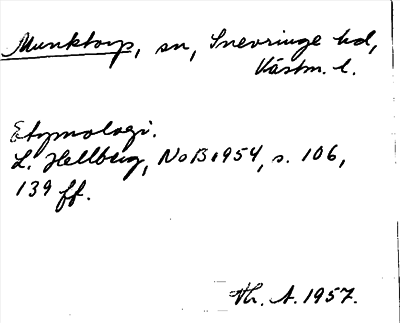 Munktorp, sn, Snevringe hd,
Västm. l.
Etymologi.
L. Hellberg, NoB 1954, s. 106,
139 ff.
Th. A. 1957.